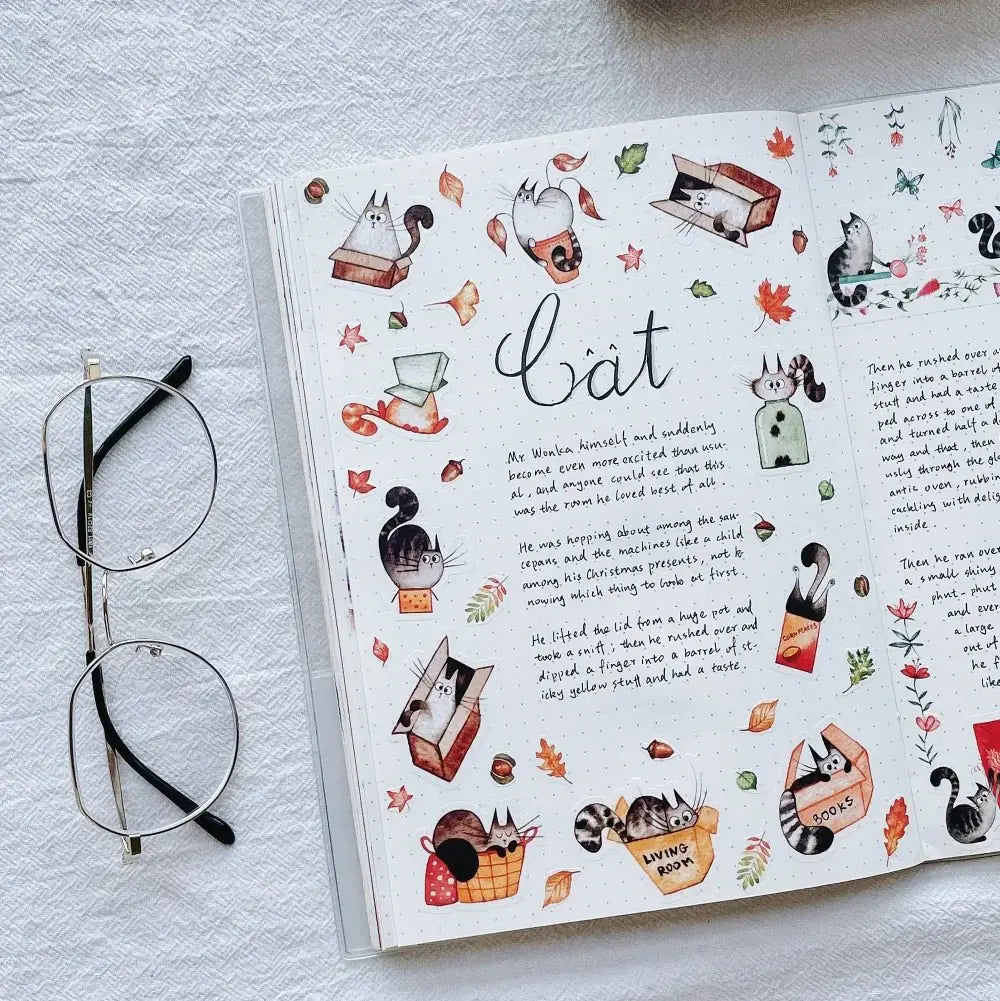 Cât
Mr. Wonka himself and suddenly
become even more excited than usu-
al, and anyone could see that this
was the room he loved best of all.
He was hopping about among the sau-
cepans and the machines like a child
among his Christmas presents, not k
nowing which thing to look at first.
He lifted the lid from a huge pot and
took a sniff; then he rushed over and
dipped a finger into a barrel of st-
icky yellow stuff and had a taste.
CORN FLAKES
LIVING
ROOM
BOOKS
Then he rushed over a
finger into a barrel of
stuff and had a taste
ped across to one of
and turned half a d
way and that, then
usly through the gl
antic oven, rubbin
cackling with delig
inside.
Then he ran over
a small shiny
phut-phut
and ever
a large
out of
he f
like